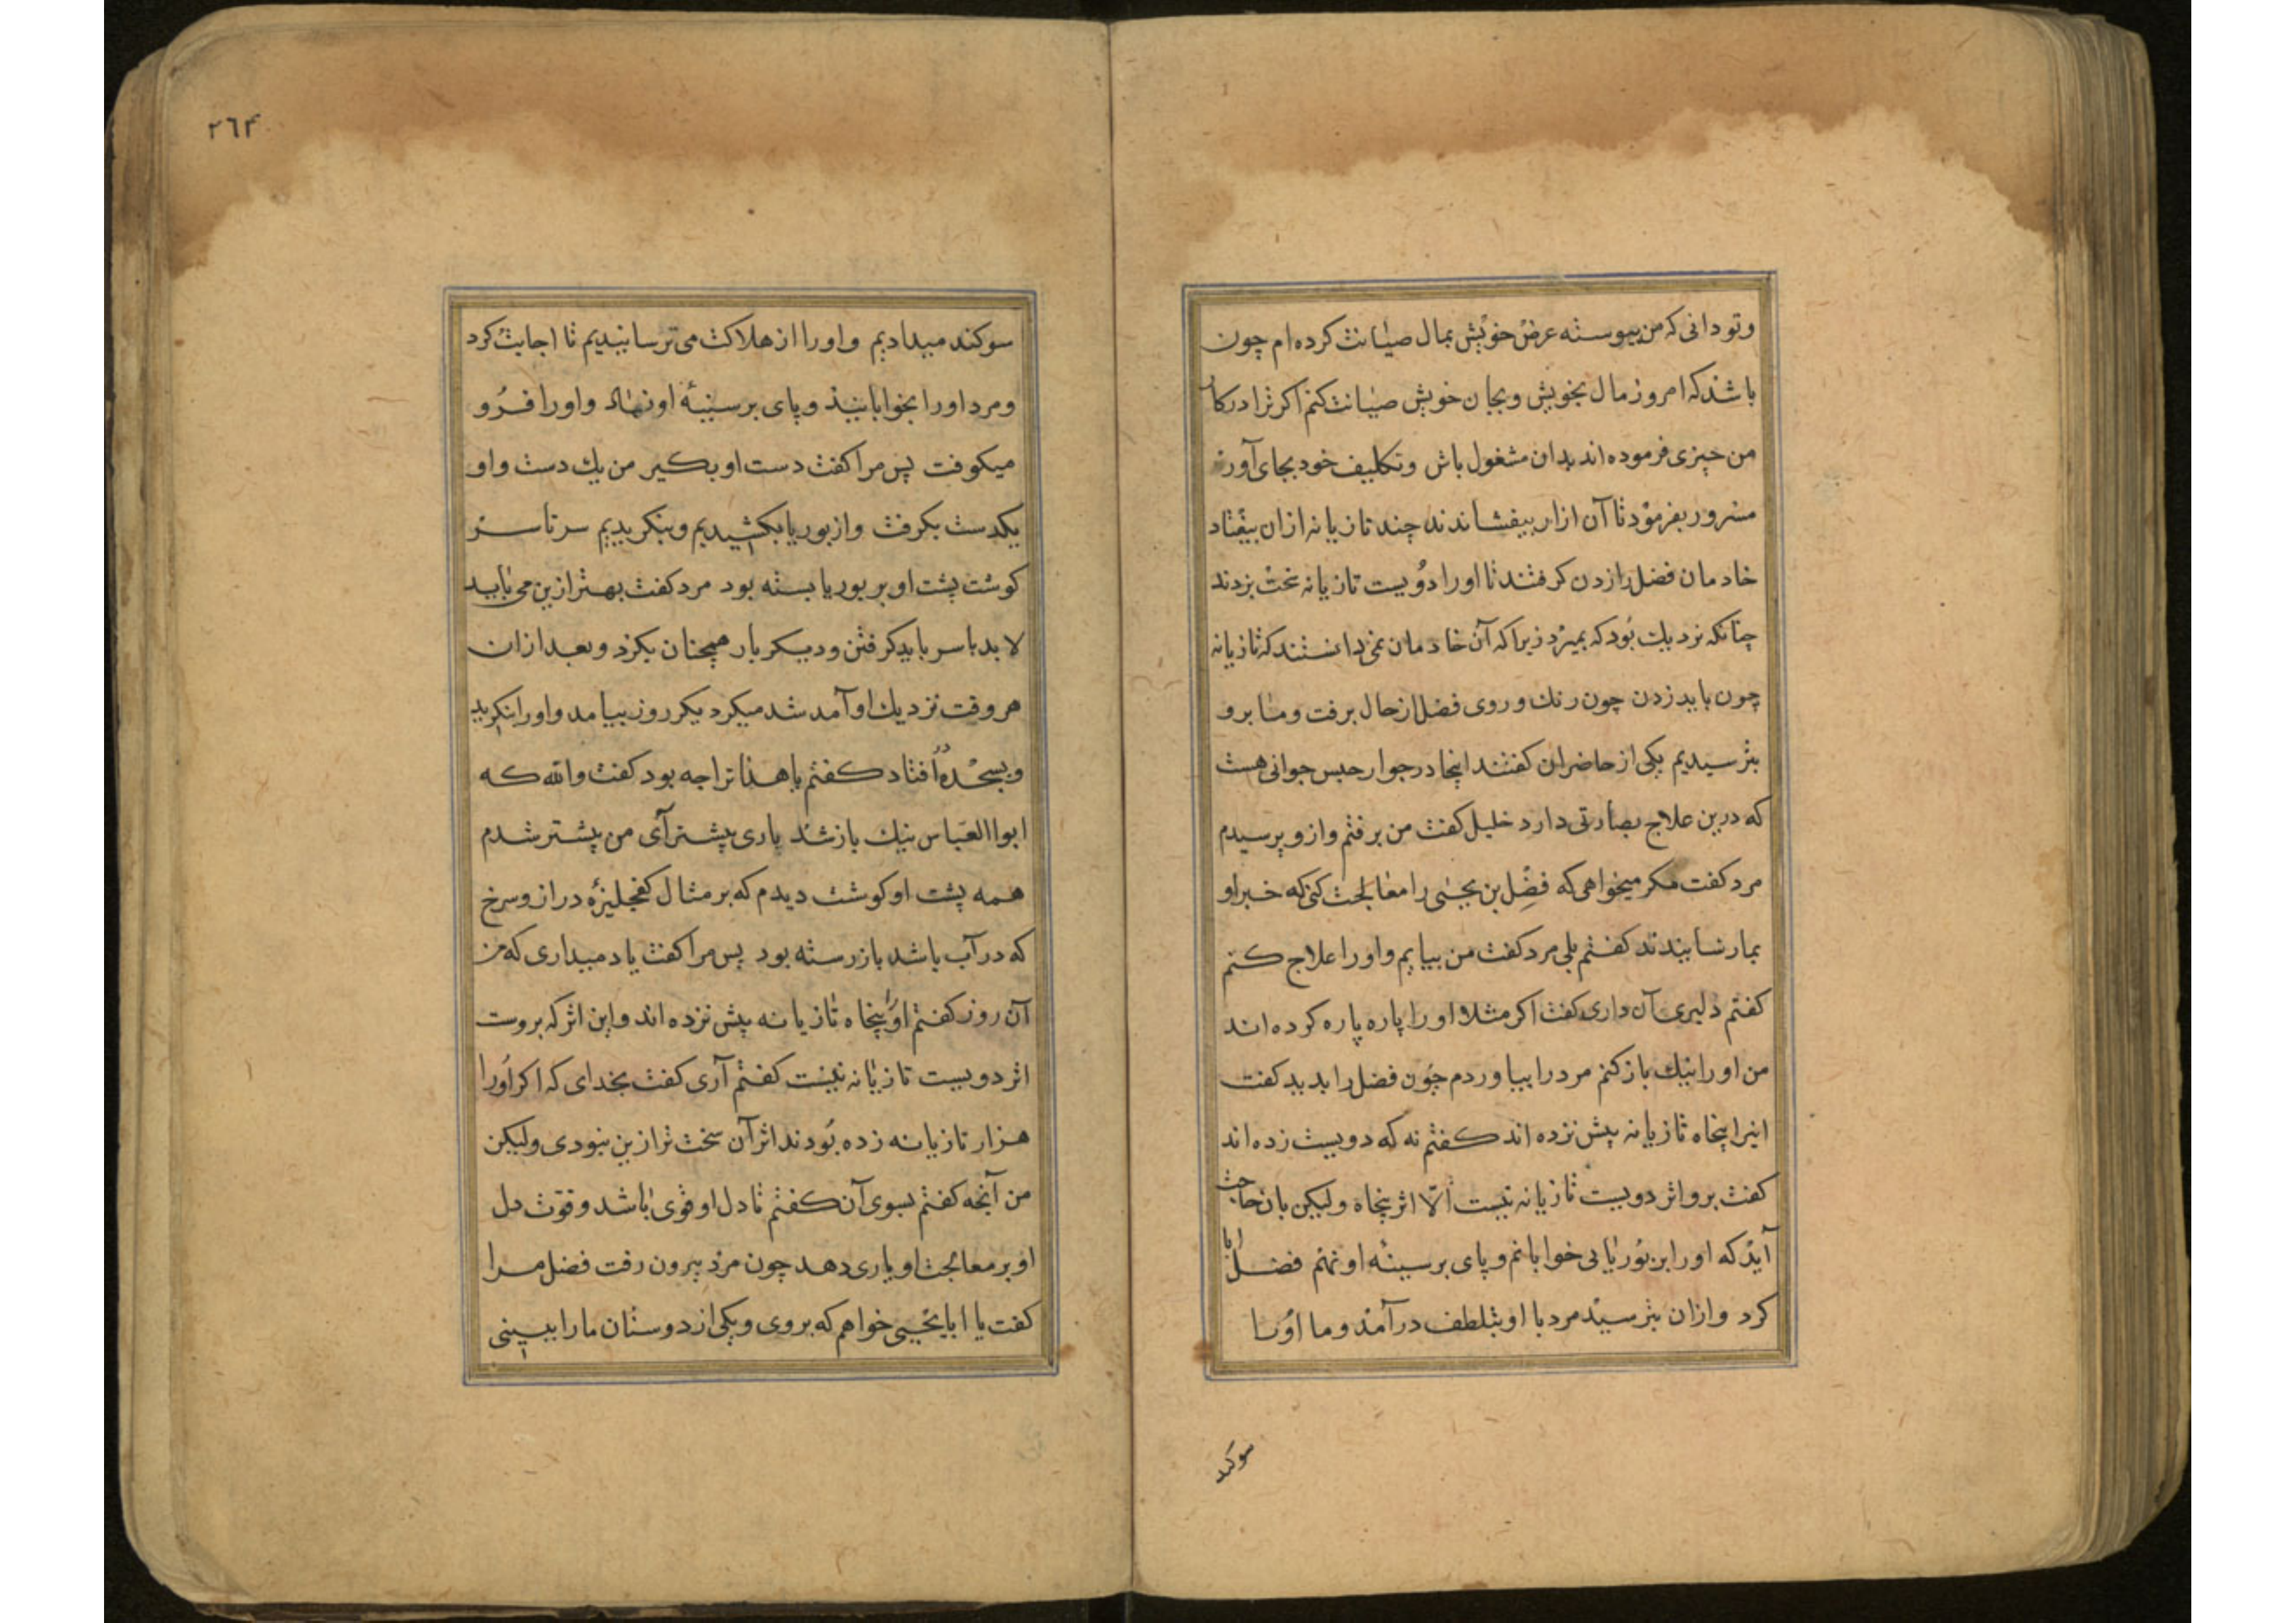 وتو دانی که من پیوسته عرض خویش بمال صیانت کرده ام چون
باشد که امروز مال بخویش وبجان خویش صیانت کنم اکر ترا در کار
من چیزی فرموده اند بدان مشغول باش وتکلیف خود بجای آور
مسرور بفرمود تا آن ازار بیفشاندند چند تازیانه ازان بیفتاد
خادمان فضل را زدن کرفتند تا اورا دویست تازیانه سخت بزدند
چنانکه نزدیک بود که بمیرد زیرا که آن خادمان نمی دانستند که تازیانه
چون باید زدن چون رنک وروی فضل از حال برفت وما برو
بترسیدیم یکی از حاضران کفتند اینجا در جوار حبس جوانی هست
که درین علاج بصارتی دارد خلیل کفت من برفتم وازو پرسیدم
مرد کفت مکر میخواهی که فضل بن یحیی را معالجت کنی که خبر او
بما رسانیدند کفتم بلی مرد کفت من بیایم واورا علاج کنم
کفتم دلیری آن داری کفت اکر مثلا اورا پاره پاره کرده اند
من اورا نیک باز کنم مرد را بیاوردم چون فضل را بدید کفت
اینرا پنجاه تازیانه پیش نزده اند کفتم نه که دویست زده اند
کفت برو اثر دویست تازیانه نیست الا اثر پنجاه ولیکن بان حاجت
آید که اورا بر بوریایی خوابانم وپای بر سینه او نهم فضل ابا
کرد وازان بترسید مرد با او بتلطف درآمد وما اورا
سوکند
٢٦٤
سوکند میدادیم واورا از هلاکت می ترسانیدیم تا اجابت کرد
ومرد اورا بخوابانید وپای بر سینهٔ او نهاد واورا فرو
میکوفت پس مرا کفت دست او بکیر من یک دست واو
یکدست بکرفت واز بوریا بکشیدیم وبنکریدیم سر تا سر
کوشت پشت او بر بوریا بسته بود مرد کفت بهتر ازین می باید
لا بد با سر باید کرفتن ودیکر بار همچنان بکرد وبعد ازان
هر وقت نزدیک او آمد شد میکرد یکروز بیامد واورا بنکرید
وبسجده در افتاد کفتم با هذا ترا چه بود کفت والله که
ابوا العباس نیک باز شد باری پیشتر آی من پیشتر شدم
همه پشت او کوشت دیدم که بر مثال کفجلیزهٔ دراز وسرخ
که در آب باشد باز رسته بود پس مرا کفت یاد میداری که من
آن روز کفتم اورا پنجاه تازیانه پیش نزده اند واین اثر که بروست
اثر دویست تازیانه نیست کفتم آری کفت بخدای که اکر اورا
هزار تازیانه زده بودند اثر آن سخت تر ازین نبودی ولیکن
من آنچه کفتم بسوی آن کفتم تا دل او قوی باشد وقوت دل
او بر معالجت او یاری دهد چون مرد بیرون رفت فضل مرا
کفت یا ابا یحیی خواهم که بروی ویکی از دوستان ما را ببینی